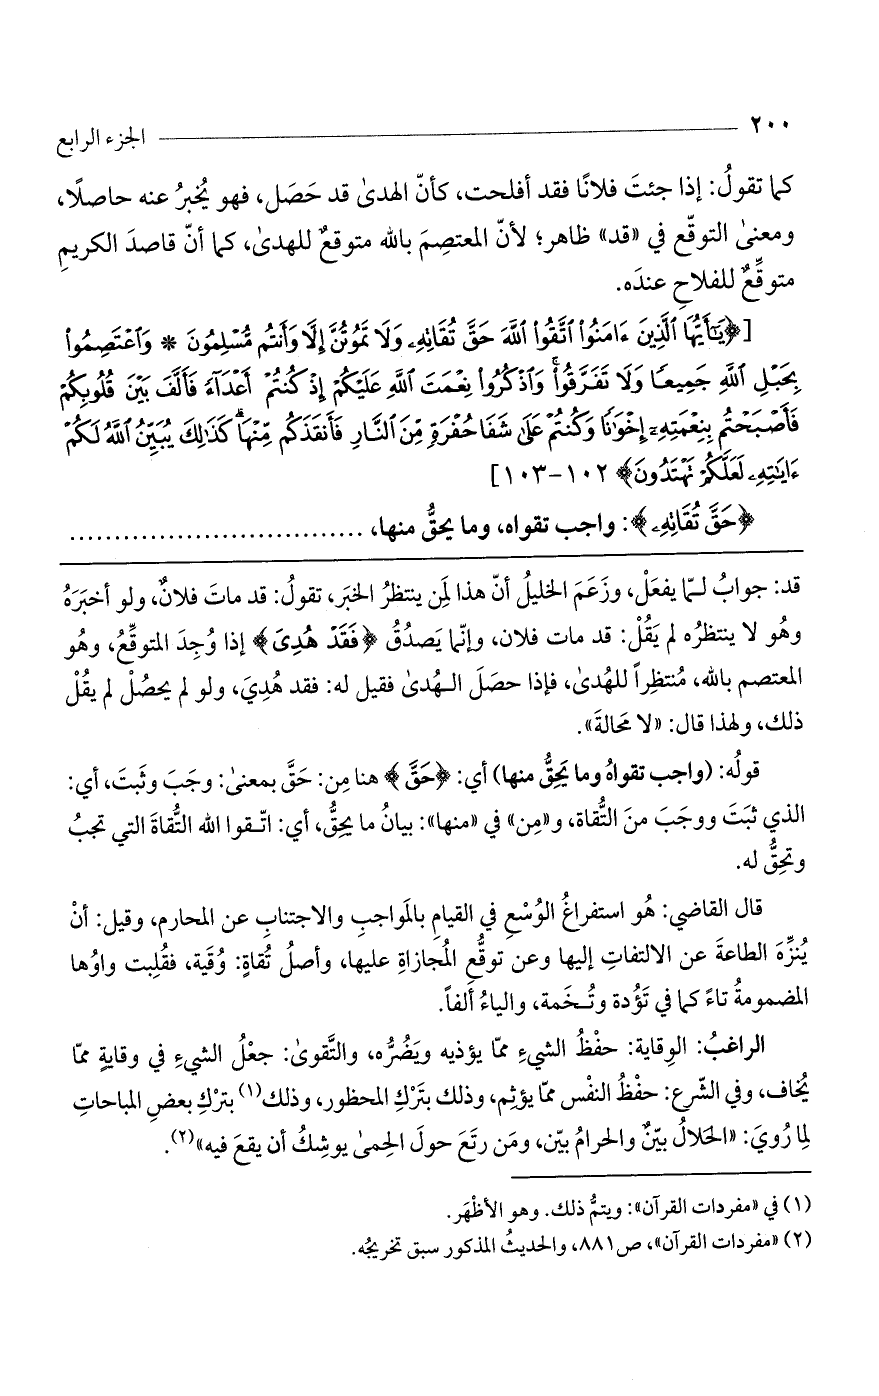 ٢٠٠ الجزء الرابع
كما تقولُ: إذا جئتَ فلانًا فقد أفلحت، كأنّ الهدىٰ قد حَصَل، فهو يُخبرُ عنه حاصلًا،
ومعنىٰ التوقّع في «قد» ظاهر؛ لأنّ المعتصِمَ بالله متوقعٌ للهدىٰ، كما أنّ قاصدَ الكريمِ
متوقِّعٌ للفلاحِ عندَه.
[﴿يَٰٓأَيُّهَا ٱلَّذِينَ ءَامَنُوا۟ ٱتَّقُوا۟ ٱللَّهَ حَقَّ تُقَاتِهِۦ وَلَا تَمُوتُنَّ إِلَّا وَأَنتُم مُّسْلِمُونَ * وَٱعْتَصِمُوا۟
بِحَبْلِ ٱللَّهِ جَمِيعًا وَلَا تَفَرَّقُوا۟ ۚ وَٱذْكُرُوا۟ نِعْمَتَ ٱللَّهِ عَلَيْكُمْ إِذْ كُنتُمْ أَعْدَآءً فَأَلَّفَ بَيْنَ قُلُوبِكُمْ
فَأَصْبَحْتُم بِنِعْمَتِهِۦٓ إِخْوَٰنًا وَكُنتُمْ عَلَىٰ شَفَا حُفْرَةٍ مِّنَ ٱلنَّارِ فَأَنقَذَكُم مِّنْهَا ۗ كَذَٰلِكَ يُبَيِّنُ ٱللَّهُ لَكُمْ
ءَايَٰتِهِۦ لَعَلَّكُمْ تَهْتَدُونَ﴾ ١٠٢-١٠٣]
﴿حَقَّ تُقَاتِهِۦ﴾: واجب تقواه، وما يحقُّ منها، ................................
قد: جوابُ لـمّا يفعَلْ، وزَعَمَ الخليلُ أنّ هذا لِمَن ينتظرُ الخبَر، تقولُ: قد ماتَ فلانٌ، ولو أخبَرَهُ
وهُو لا ينتظرُه لم يَقُلْ: قد مات فلان، وإنّما يَصدُقُ ﴿فَقَدْ هُدِىَ﴾ إذا وُجِدَ المتوقِّعُ، وهُو
المعتصم بالله، مُنتظِراً للهُدىٰ، فإذا حصَلَ الـهُدىٰ فقيل له: فقد هُدِيَ، ولو لم يحصُلْ لم يقُلْ
ذلك، ولهذا قال: «لا مَحالةَ».
قولُه: (واجب تقواهُ وما يَحِقُّ منها) أي: ﴿حَقَّ﴾ هنا مِن: حَقَّ بمعنىٰ: وجَبَ وثَبتَ، أي:
الذي ثبَتَ ووجَبَ منَ التُّقاة، و«مِن» في «منها»: بيانُ ما يحِقُّ، أي: اتّـقوا الله التُّقاةَ التي تجبُ
وتحِقُّ له.
قال القاضي: هُو استفراغُ الوُسْعِ في القيامِ بالمَواجبِ والاجتنابِ عن المحارم، وقيل: أنْ
يُنزِّهَ الطاعةَ عن الالتفاتِ إليها وعن توقُّعِ المُجازاةِ عليها، وأصلُ تُقاةٍ: وُقَية، فقُلِبت واوُها
المضمومةُ تاءً كما في تَؤُدة وتُـخَمة، والياءُ ألفاً.
الراغبُ: الوِقاية: حفْظُ الشيءِ ممّا يؤذيه ويَضُرُّه، والتَّقوىٰ: جعْلُ الشيءِ في وقايةٍ ممّا
يُخاف، وفي الشّرع: حفْظُ النفْس ممّا يؤثِم، وذلك بتَرْكِ المحظور، وذلك(١) بتركِ بعضِ المباحاتِ
لِما رُويَ: «الحَلالُ بيّنٌ والحرامُ بيّن، ومَن رتَعَ حولَ الحِمىٰ يوشِكُ أن يقعَ فيه»(٢).
(١) في «مفردات القرآن»: ويتمُّ ذلك. وهو الأظْهَر.
(٢) «مفردات القرآن»، ص٨٨١، والحديثُ المذكور سبق تخريجُه.